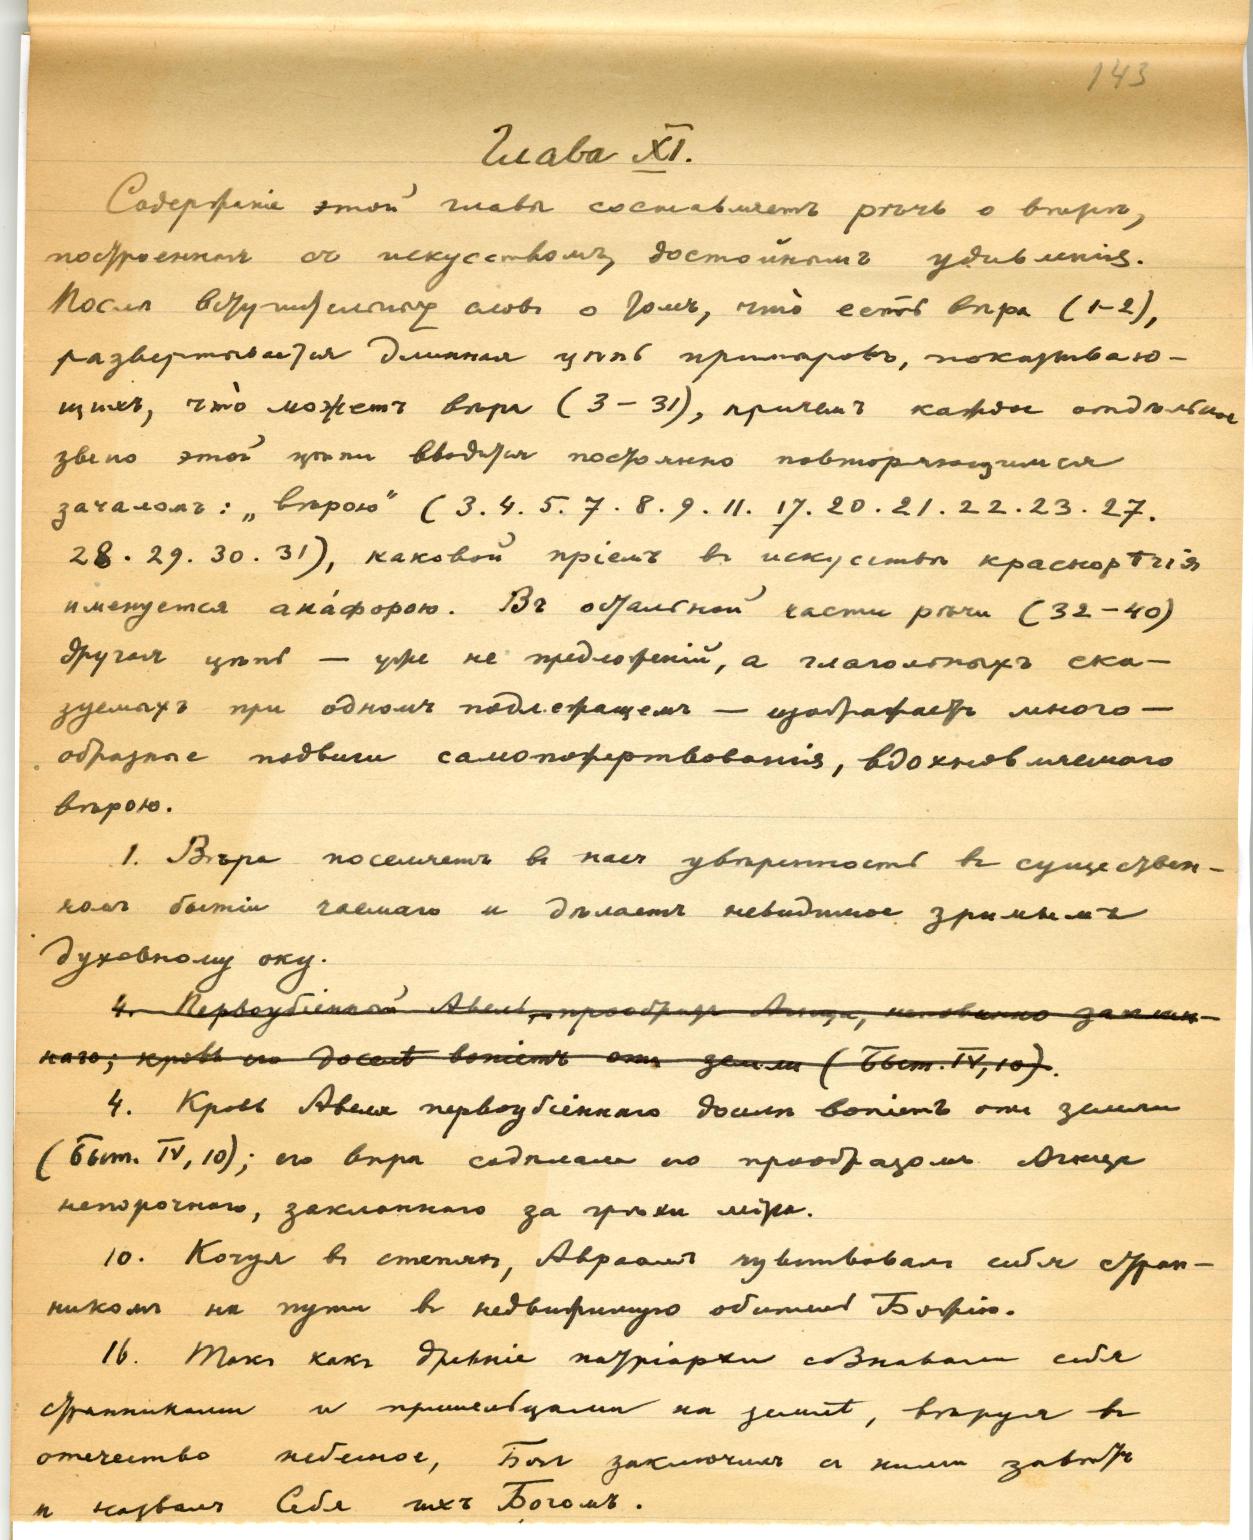 143
Глава XI.
Содержаніе этой главы составляетъ рѣчь о вѣрѣ,
построенная съ искусствомъ, достойнымъ удивленія.
Послѣ вступительныхъ словъ о томъ, что̀ есть вѣра (1-2),
развертывается длинная цѣпь примѣровъ, показываю-
щихъ, что̀ можетъ вѣра (3-31), причемъ каждое отдѣльное
звено этой цѣпи вводится постоянно повторяющимся
зачаломъ: „вѣрою" (3. 4. 5. 7. 8. 9. 11. 17. 20. 21. 22. 23. 27.
28. 29. 30. 31), каковой пріемъ въ искусствѣ краснорѣчія
именуется ана́форою. Въ остальной части рѣчи (32-40)
другая цѣпь — уже не предложеній, а глагольныхъ ска-
зуемыхъ при одномъ подлежащемъ — изображаетъ много-
образные подвиги самопожертвованія, вдохновляемаго
вѣрою.
1. Вѣра поселяетъ въ насъ увѣренность въ существен-
номъ бытіи чаемаго и дѣлаетъ невидимое зримымъ
духовному оку.
4. Первоубіенный Авель, прообразъ Агнца, неповинно заклан-
наго; кровь его доселѣ вопіетъ отъ земли (Быт. IV, 10).
4. Кровь Авеля первоубіеннаго доселѣ вопіетъ отъ земли
(Быт. IV, 10); его вѣра содѣлала его прообразомъ Агнца
непорочнаго, закланнаго за грѣхи міра.
10. Кочуя въ степяхъ, Авраамъ чувствовалъ себя стран-
никомъ на пути въ недвижимую обитель Божію.
16. Такъ какъ древніе патріархи сознавали себя
странниками и пришельцами на землѣ, вѣруя въ
отечество небесное, Богъ заключилъ съ ними завѣтъ
и назвалъ Себя ихъ Богомъ.